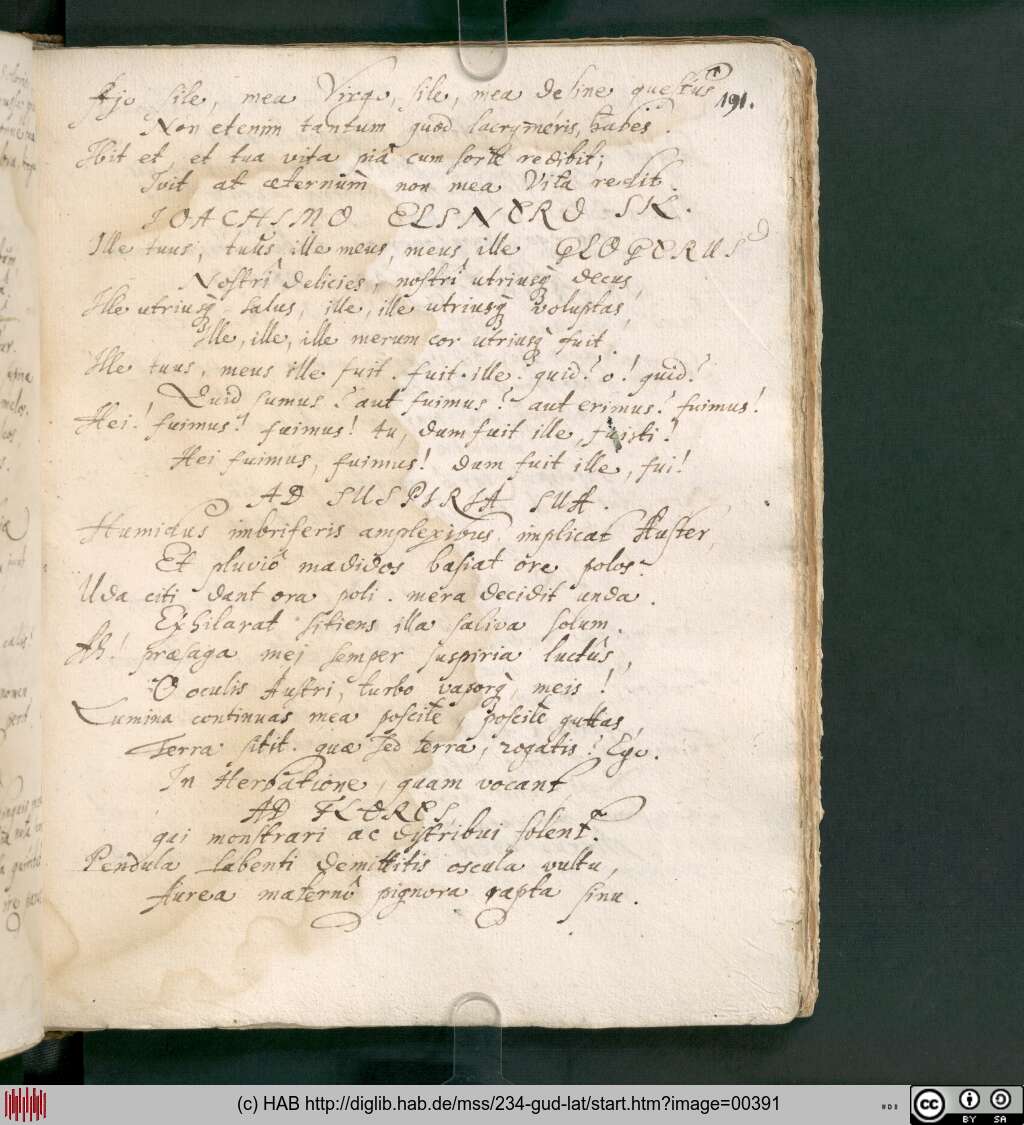 Aje sile, mea Virgo, sile, mea desine questus
191.
Non etenim tantum quod lacrymeris, habes.
Abit et, et tua vita piâ cum sorte redibit;
Ivit, at æternùm non mea Vita redit.
IOACHIMO ELSNERO SIL.
Ille tuus, tuus ille meus, meus ille GLOGERUS
Nostri delicies, nostri utriusq decus,
Ille utriusq salus, ille, ille utriusq voluptas,
Ille, ille, ille merum cor utriusq fuit.
Ille tuus, meus ille fuit. fuit ille? quid? o! quid?
Quid sumus? aut fuimus? aut erimus? fuimus!
Hei! fuimus! fuimus! tu, dum fuit ille, fuisti!
Hei fuimus, fuimus! dum fuit ille, fui!
AD SUSPIRIA SUA.
Humidus imbriferis amplexibus implicat Auster,
Et pluviô madidos basiat ore polos.
Uda citi dant ora poli. mera decidit unda.
Exhilarat sitiens illa saliva solum.
Ah! præsaga mej semper suspiria luctûs,
O oculis Austri, turbo vaporq, meis!
Lumina continuas mea poscite, poscite guttas,
Terra sitit. quæ sed terra, rogatis? Ego.
In Herbatione, quam vocant,
AD FLORES,
qui monstrari ac distribui solent.
Pendula labenti demittitis oscula vultu,
Aurea maternô pignora rapta sinu.
(c) HAB http://diglib.hab.de/mss/234-gud-lat/start.htm?image=00391
cc BY SA